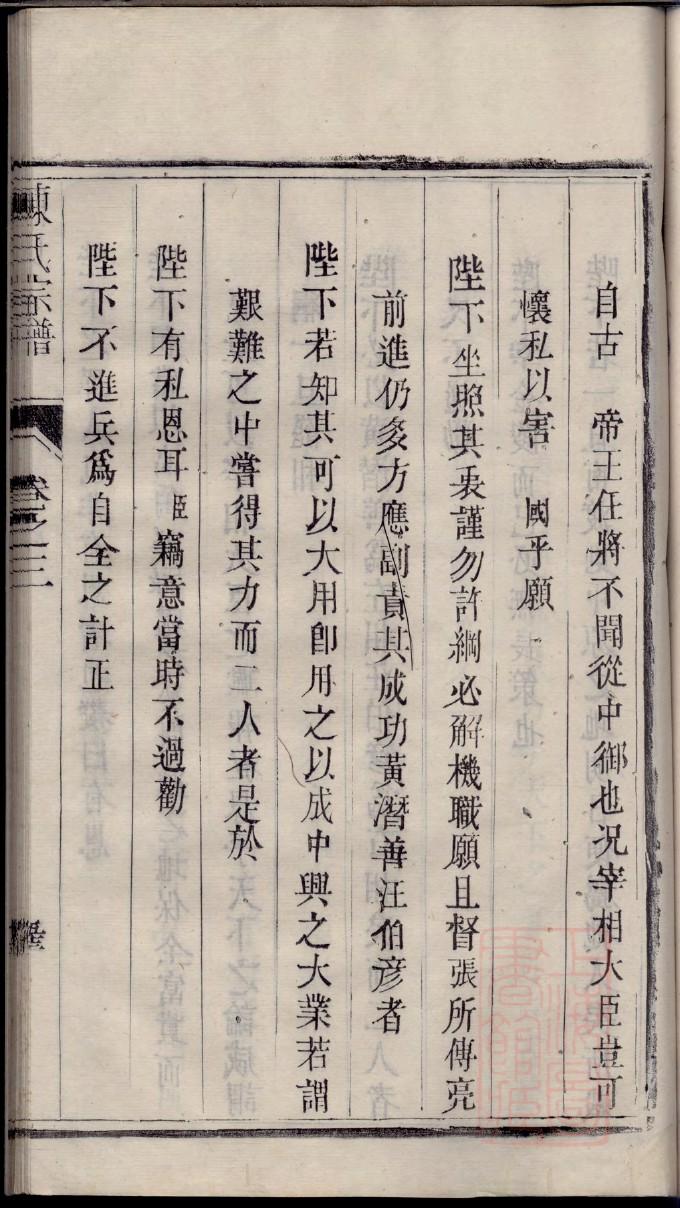 自古　帝王任將不聞從中御也况宰相大臣豈可
懷私以害　國乎願
陛下坐照其衷謹勿許綱必解機職願且督張所傅亮
前進仍多方應副責其成功黃潛善汪伯彦者
陛下若知其可以大用卽用之以成中興之大業若謂
艱難之中嘗得其力而二人者是於
陛下有私恩耳臣竊意當時不過勸
陛下不進兵爲自全之計正
陳氏宗譜　卷之三